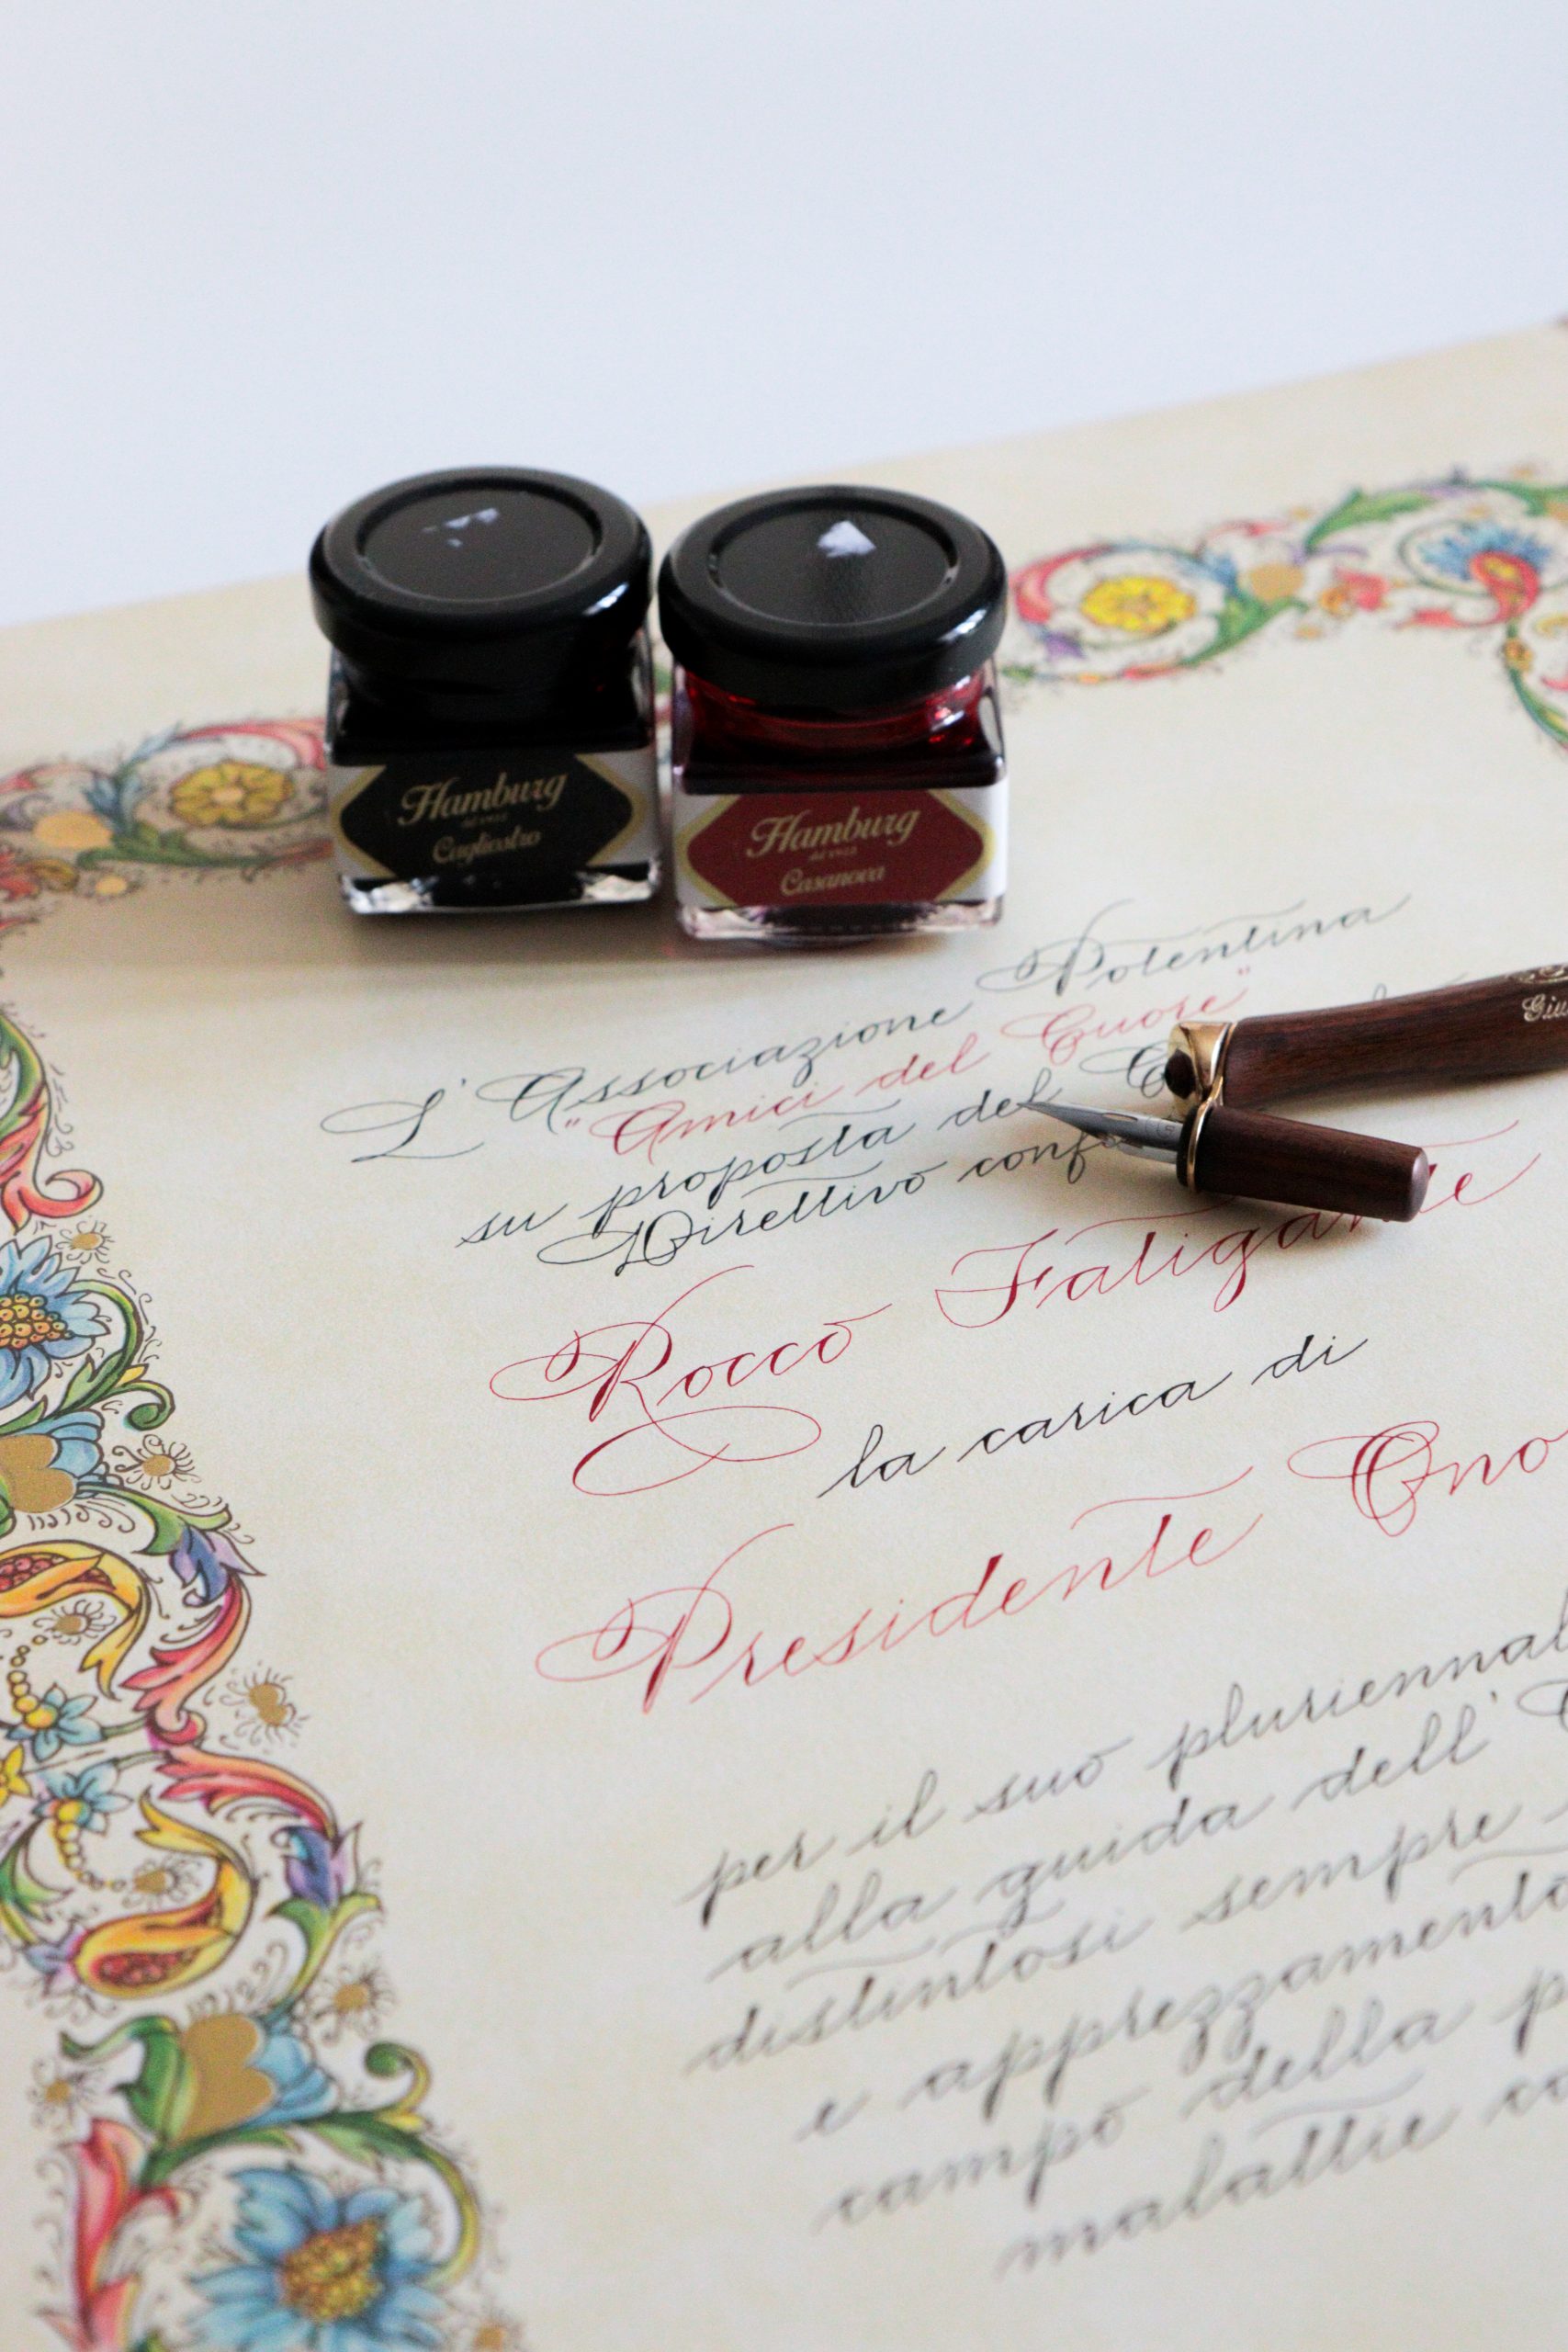 Hamburg
dal 1952
Cagliostro
Hamburg
dal 1952
Casanova
L'Associazione Potentina
"Amici del Cuore"
su proposta del
Direttivo
Rocco Fatigante
la carica di
Presidente
per il suo
alla guida dell'
distintosi sempre
e apprezzamento
campo della
malattie